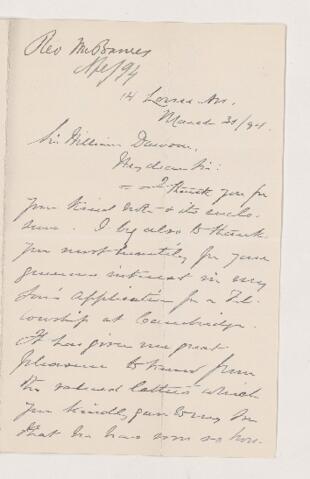 Rev Mr Barnes
Apl/94
14 Lorne Av.
March 31/94.
Sir William Dawson,
My dear Sir:
I thank you for
your kind note & its enclo-
sure. I beg also to thank
you most heartily for your
generous interest in my
son's application for a Fel-
lowship at Cambridge.
It has given me great
pleasure to know from
the valued letter which
you kindly gave to my son
that he has won so hon-